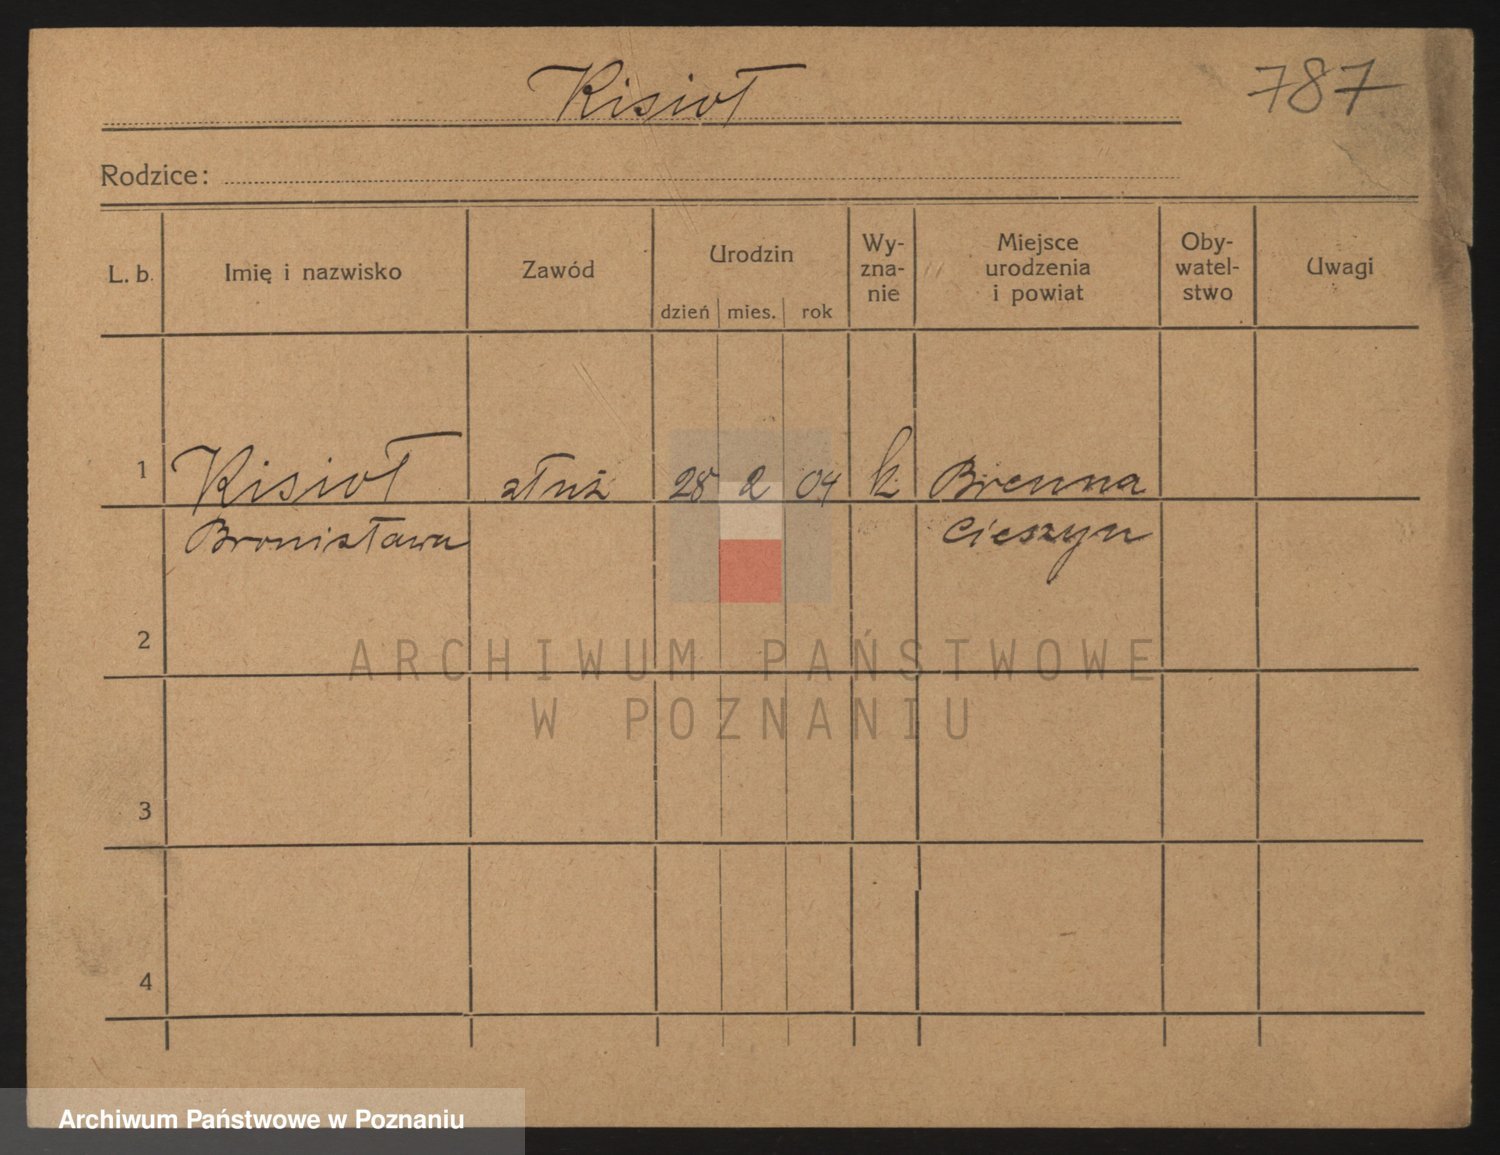 Kisioł
787
Rodzice:
L. b. Imię i nazwisko Zawód Urodzin dzień mies. rok Wy-zna-nie Miejsce urodzenia i powiat Oby-watel-stwo Uwagi
1 Kisioł 28 2 04 k Brenna
Bronisława Cieszyn
2
ARCHIWUM PAŃSTWOWE
W POZNANIU
3
4
Archiwum Państwowe w Poznaniu